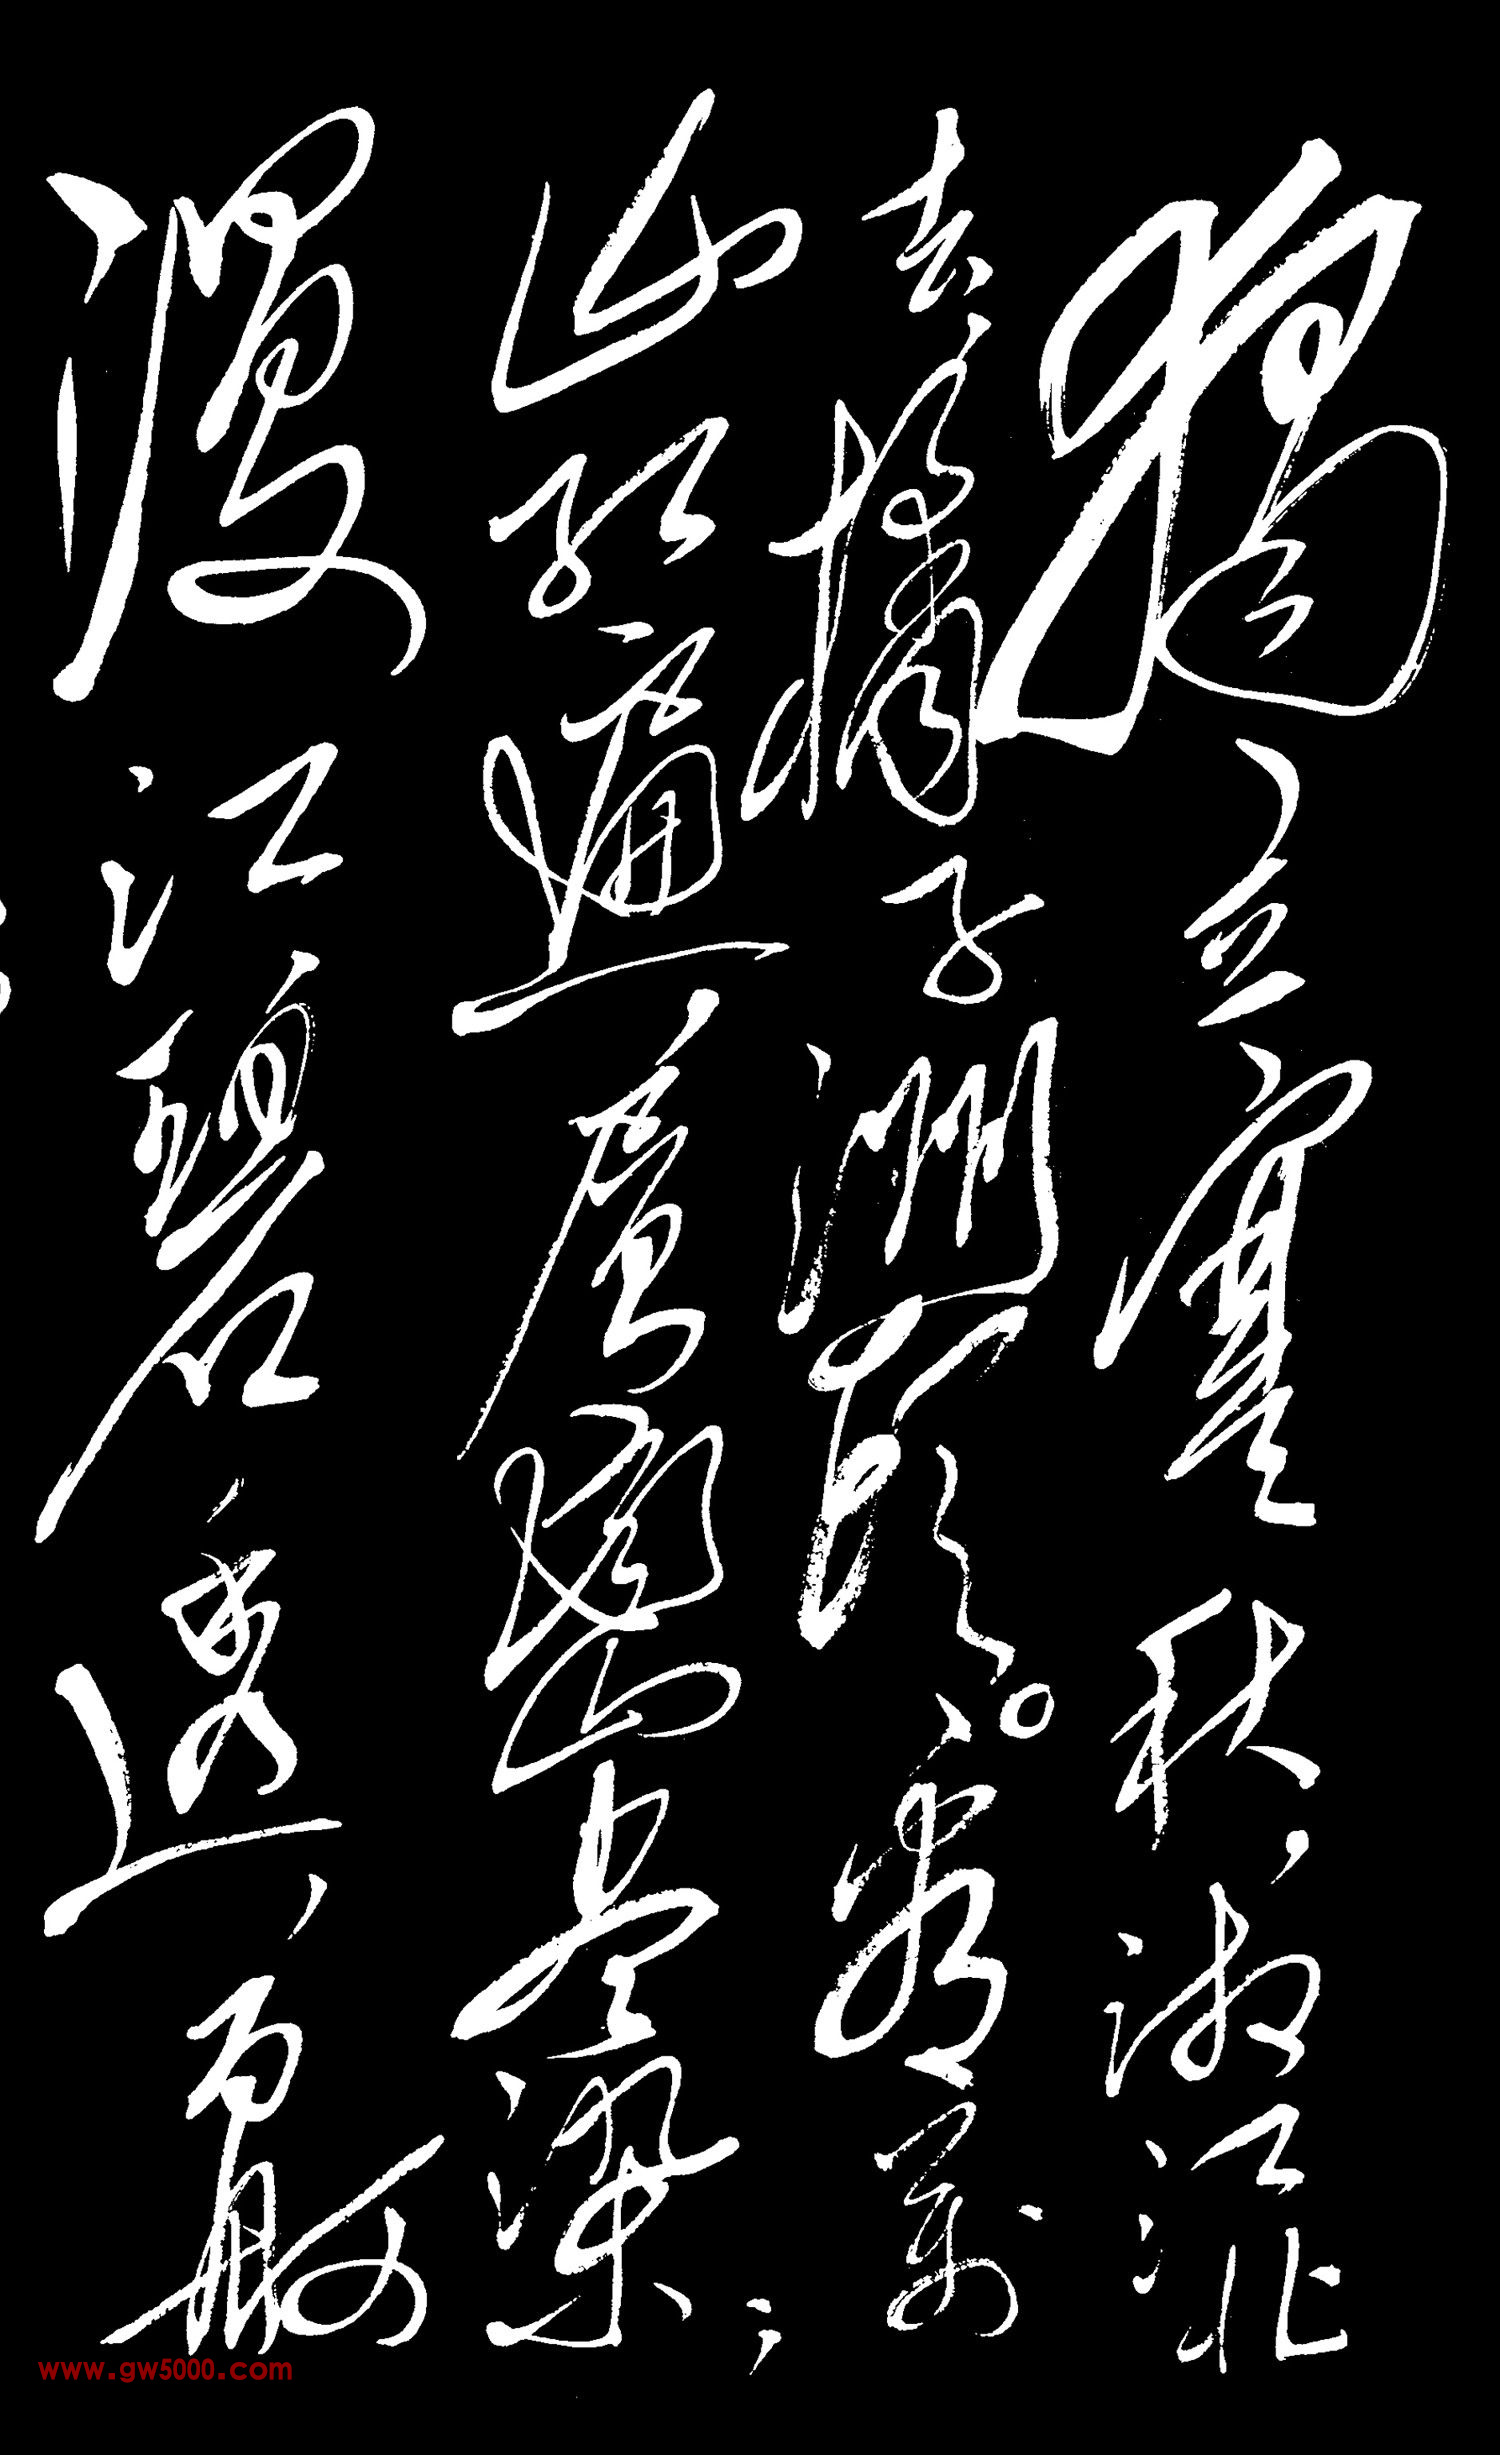 獨立寒秋，湘江北
去，橘子洲頭。看萬
山紅遍，層巒盡染；
漫江碧透，百舸
www.gw5000.com